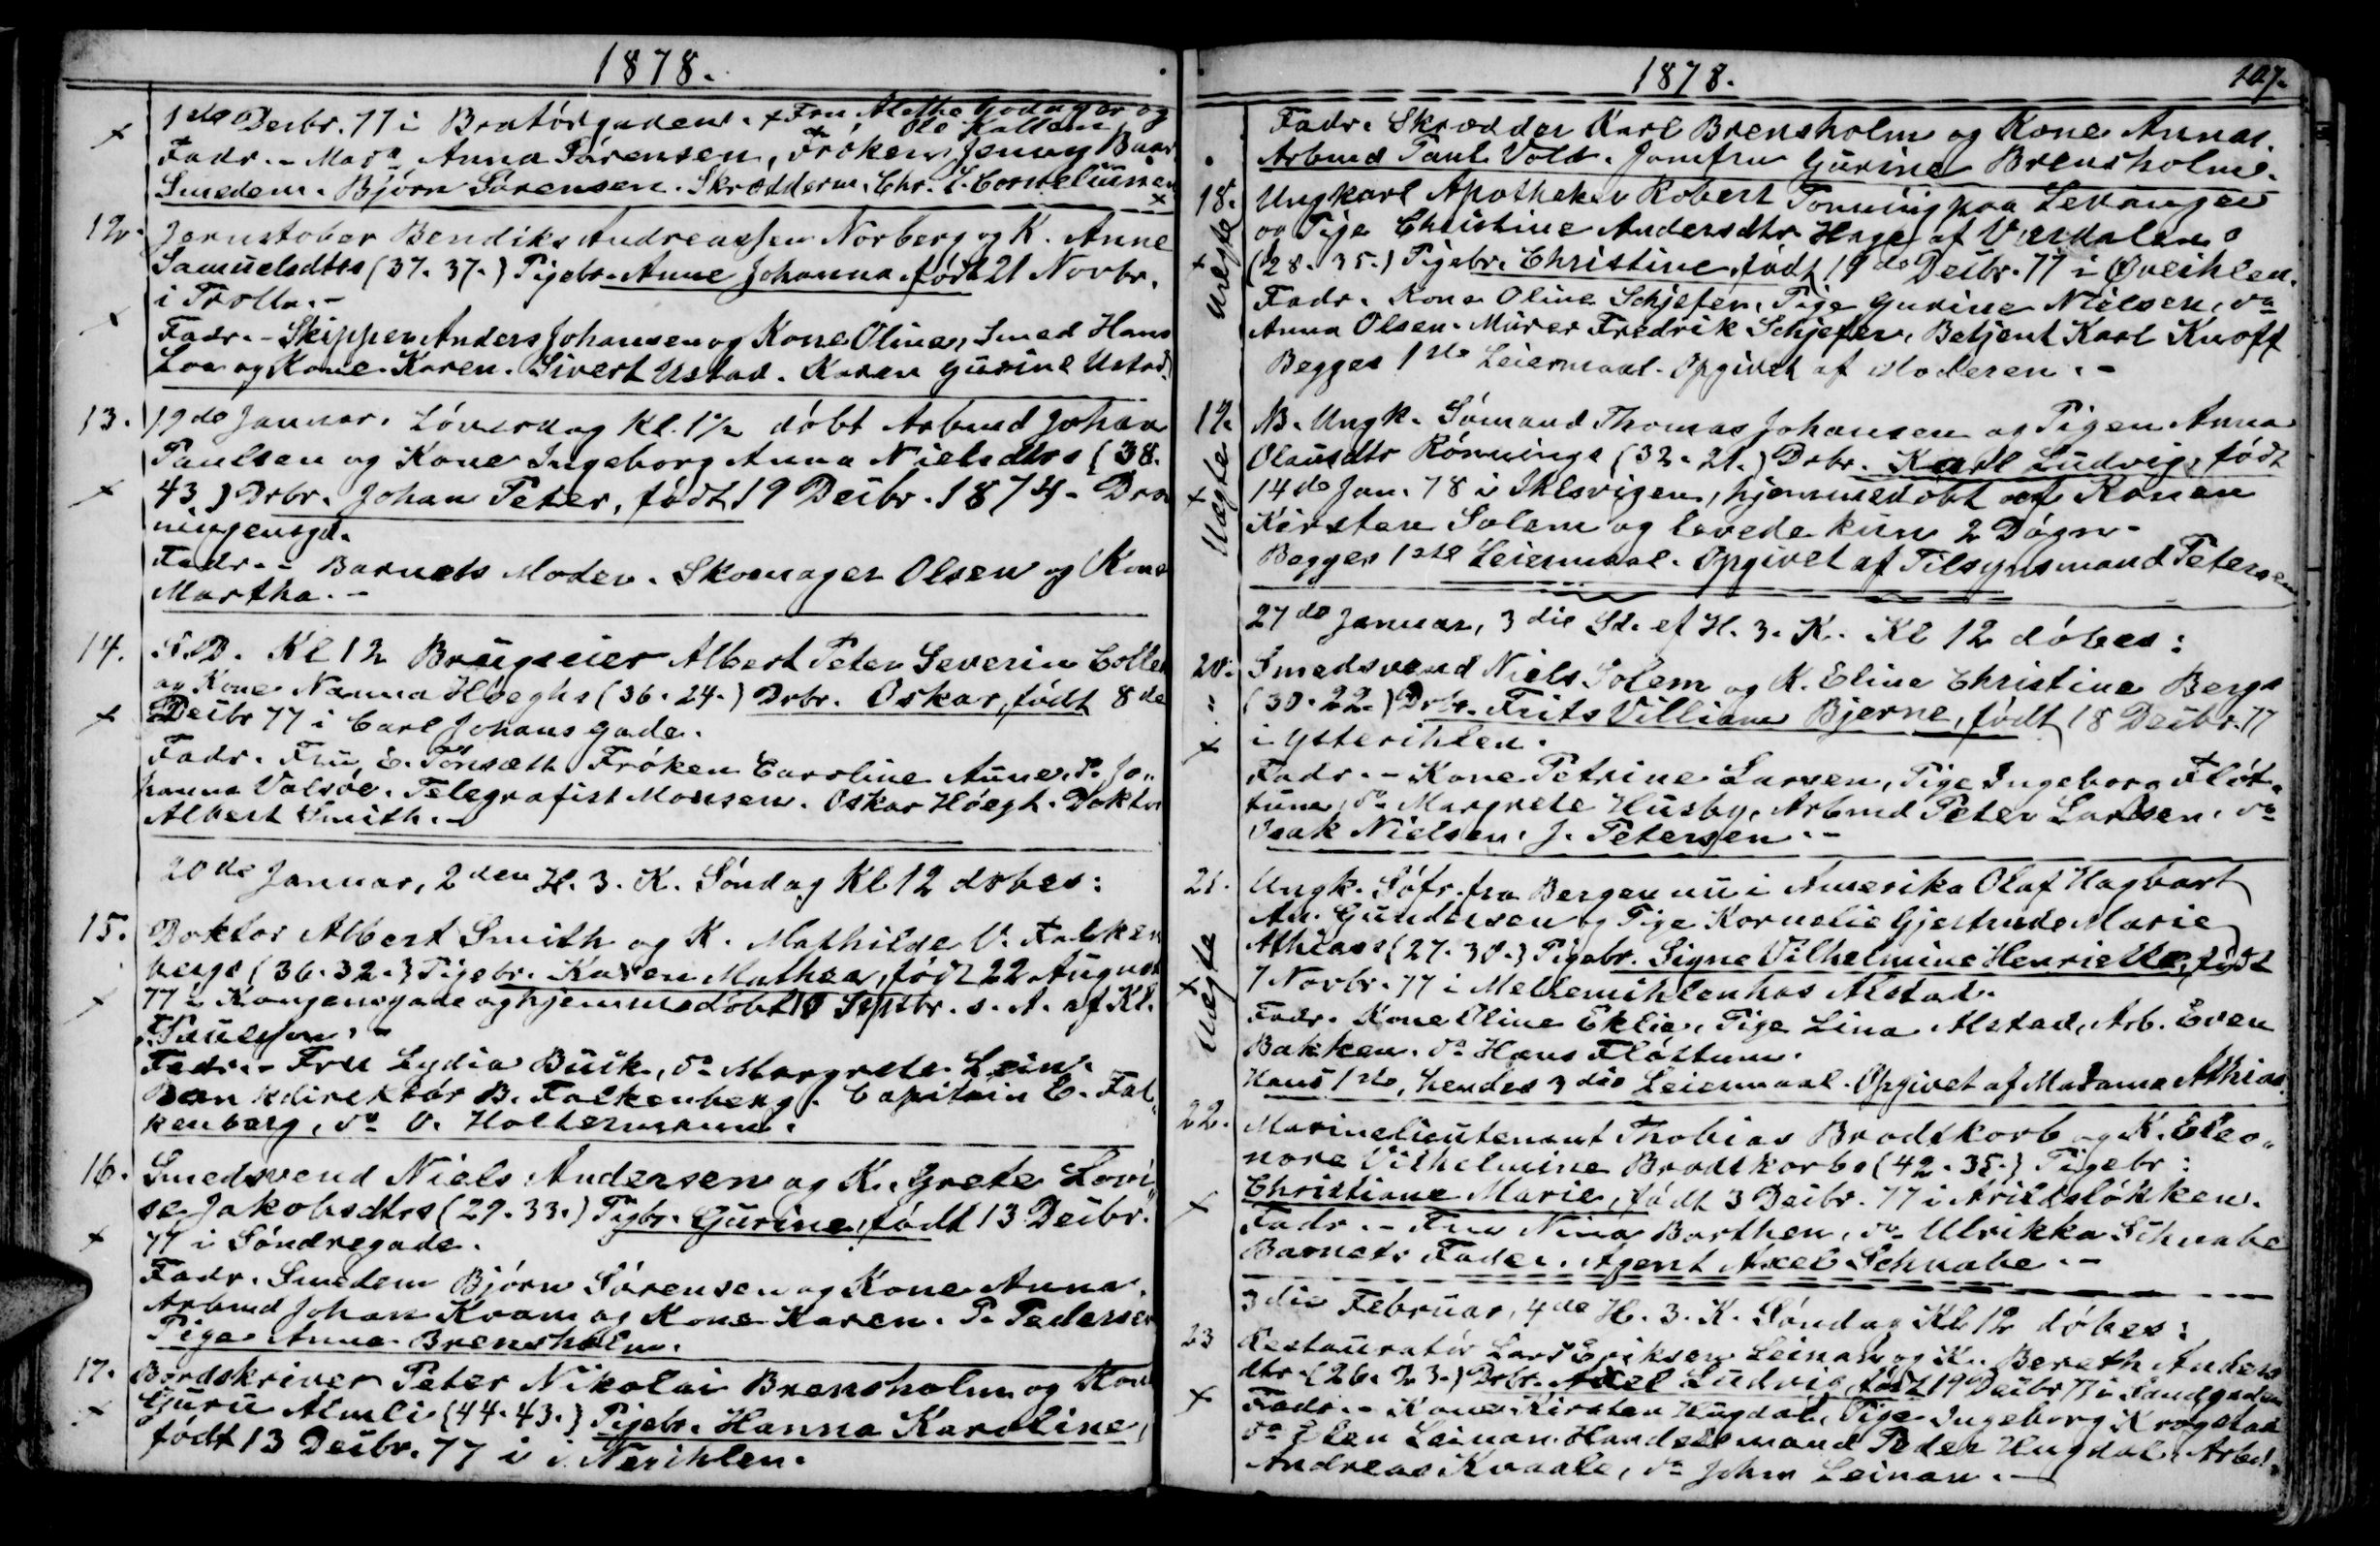 1878.
1ste Decbr. 77 i Bratörgaden. + Fru Alethe Godager og
Ole Kallem
Fadr. - Mara Anna Sörensen, Fröken Jenny Baar
Smedem. Björn Sörensen. Skrædderm. Chr. L. Corneliussen
12. Jernstøber Bendiks Andreassen Norberg og K. Anne
Samuelsdtrs (37. 37.) Pigebr. Anne Johanna, født 21 Novbr.
i Trolla. -
Fadr. - Skipper Anders Johansen og Kone Oline, Smed Hans
Loe og Kone Karen. Sivert Ustad. Karen Gurine Ustad.
13. 19de Januar. Löverdag Kl. 1 1/2 döbt Arbmd Johan
Paulsen og Kone Ingeborg Anna Nielsdtrs (38.
43.) Drbr. Johan Peter, født 19 Decbr. 1874. Dron
ningensgd.
Fadr. - Barnets Moder. Skomager Olsen og Kone
Martha. -
14. S.D. Kl 12 Brugseier Albert Peter Severin Collett
og Kone Nanna Höeghs (36. 24.) Drbr. Oskar, født 8de
Decbr 77 i Carl Johans gade.
Fadr. Fru E. Tönsæth. Fröken Caroline Aune. Jo„
hanna Valsöe. Telegrafist Monsen. Oskar Höegh. Doktor
Albert Smith. -
20de Januar, 2den H. 3. K. Söndag Kl 12 döbes:
15. Doktor Albert Smith og K. Mathilde V. Falken
bergs (36. 32.) Pigebr. Karen Mathea, født 22 August
77 i Kongensgade og hjemmedöbt Septbr. s. A. af Kl.
Paulsson. -
Fadr. - Fru Lydia Buck, do Margrete Lein.
Bankdirektör B. Falkenberg. Capitain C. Fal„
kenberg, do O. Holtermann.
16. Smedsvend Niels Andersen og K. Grete Lovi„
se Jakobsdtrs (29. 33.) Pigbr. Gurine, født 13 Decbr.
77 i Söndregade.
Fadr. Smedem Björn Sörensen og Kone Anna.
Arbmd Johan Kvam og Kone Karen. P. Pedersen
Pige Anna Brensholm.
17. Bordskriver Peter Nikolai Brensholm og Kone
Guru Almli (44. 43.) Pigebr. Hanna Karoline,
født 13 Decbr. 77 i Nerihlen.
1878. 107.
Fadr. Skrædder Karl Brensholm og Kone Anna.
Arbmd Paul Vold. Jomfru Gurine Brensholm.
18. Ungkarl Apotheker Robert Tonning paa Levanger
og Pige Christine Andersdtr Hage af Værdalen
Uægte (28. 35.) Pigebr. Christine, født 19de Decbr. 77 i Øveihlen.
Fadr. Kone Oline Schjefer, Pige Gurine Nielsen, do
Anna Olsen. Murer Fredrik Schjefer, Betjent Karl Knoff
Begges 1ste Leiermaal. Opgivet af Moderen. -
19. B. Ungk. Sömand Thomas Johansen og Pigen Anna
Olausdtr Rönnings (32. 21.) Drbr. Karl Ludvig, født
Uægte 14de Jan. 78 i Iklsvigen, hjemmedöbt af Konen
Kirsten Solem og levede kun 2 Dögn.
Begges 1ste Leiermaal. Opgivet af Tilsynsmand Petersen
27de Januar, 3die Sd. ef H. 3. K. Kl 12 döbes:
20. Smedsvend Niels Solem og K. Eline Christine Bergs
(30. 22.) Drbr. Frits Villiam Bjerne, født 18 Decbr. 77
i Ysterihlen.
Fadr. - Kone Petrine Larsen, Pige Ingeborg Flöt„
tum, do Margrete Husby, Arbmd Peter Larsen, do
Isak Nielsen. J. Petersen. -
21. Ungk. Söfr. fra Bergen nu i Amerika Olaf Hagbart
An. Gundersen og Pige Kornelie Gjertrude Marie
Athias (27. 30.) Pigebr. Signe Vilhelmine Henriette, født
Uægte 7 Novbr. 77 i Mellemihlen hos Alstad.
Fadr. Kone Oline Eklie, Pige Lina Alstad, Arb. Even
Bakken. do Hans Flöttum.
Hans 1ste, hendes 3die Leiermaal. Opgivet af Madame Athias.
22. Marinelieutenant Thobias Brodtkorb og K. Eleo„
nore Vilhelmine Brodtkorbs (42. 35.) Pigebr:
Christiane Marie, født 3 Decbr. 77 i Arildslökken.
Fadr. - Fru Nina Barthen, do Ulrikka Schnabe
Barnets Fader. Agent Axel Schnabe. -
3die Februar, 4de H. 3. K. Söndag Kl 12 döbes:
23 Restauratör Lars Eriksen Leinan og K. Bereth Anders
dtr (26. 23.) Drbr. Axel Ludvig, født 19 Decbr 77 i Sandgaden
Fadr. - Kone Kirsten Hugdal, Pige Ingeborg Krogstad
do Elen Leinan. Handelsmand Peder Hugdal, Arbd.
Andreas Kvaale, do John Leinan. -